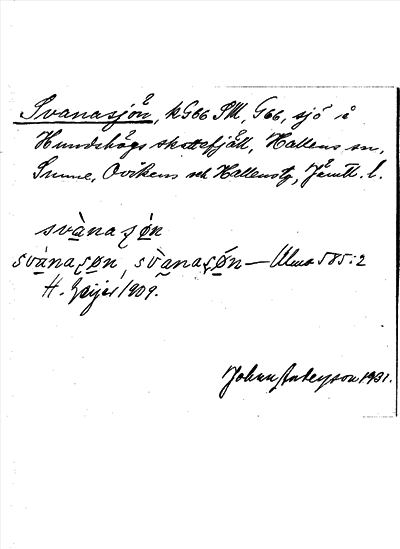 Svanasjön, k G66 SM, G66, sjö i
Hundshögs skattefjäll, Hallens sn,
Sunne, Ovikens och Hallens tg, Jämtl. l.
svànaʂøn
svànaʂøn, svànaʂǿn — Ulma 585:2
H. Geijer 1909.
Johan Anderson 1931.